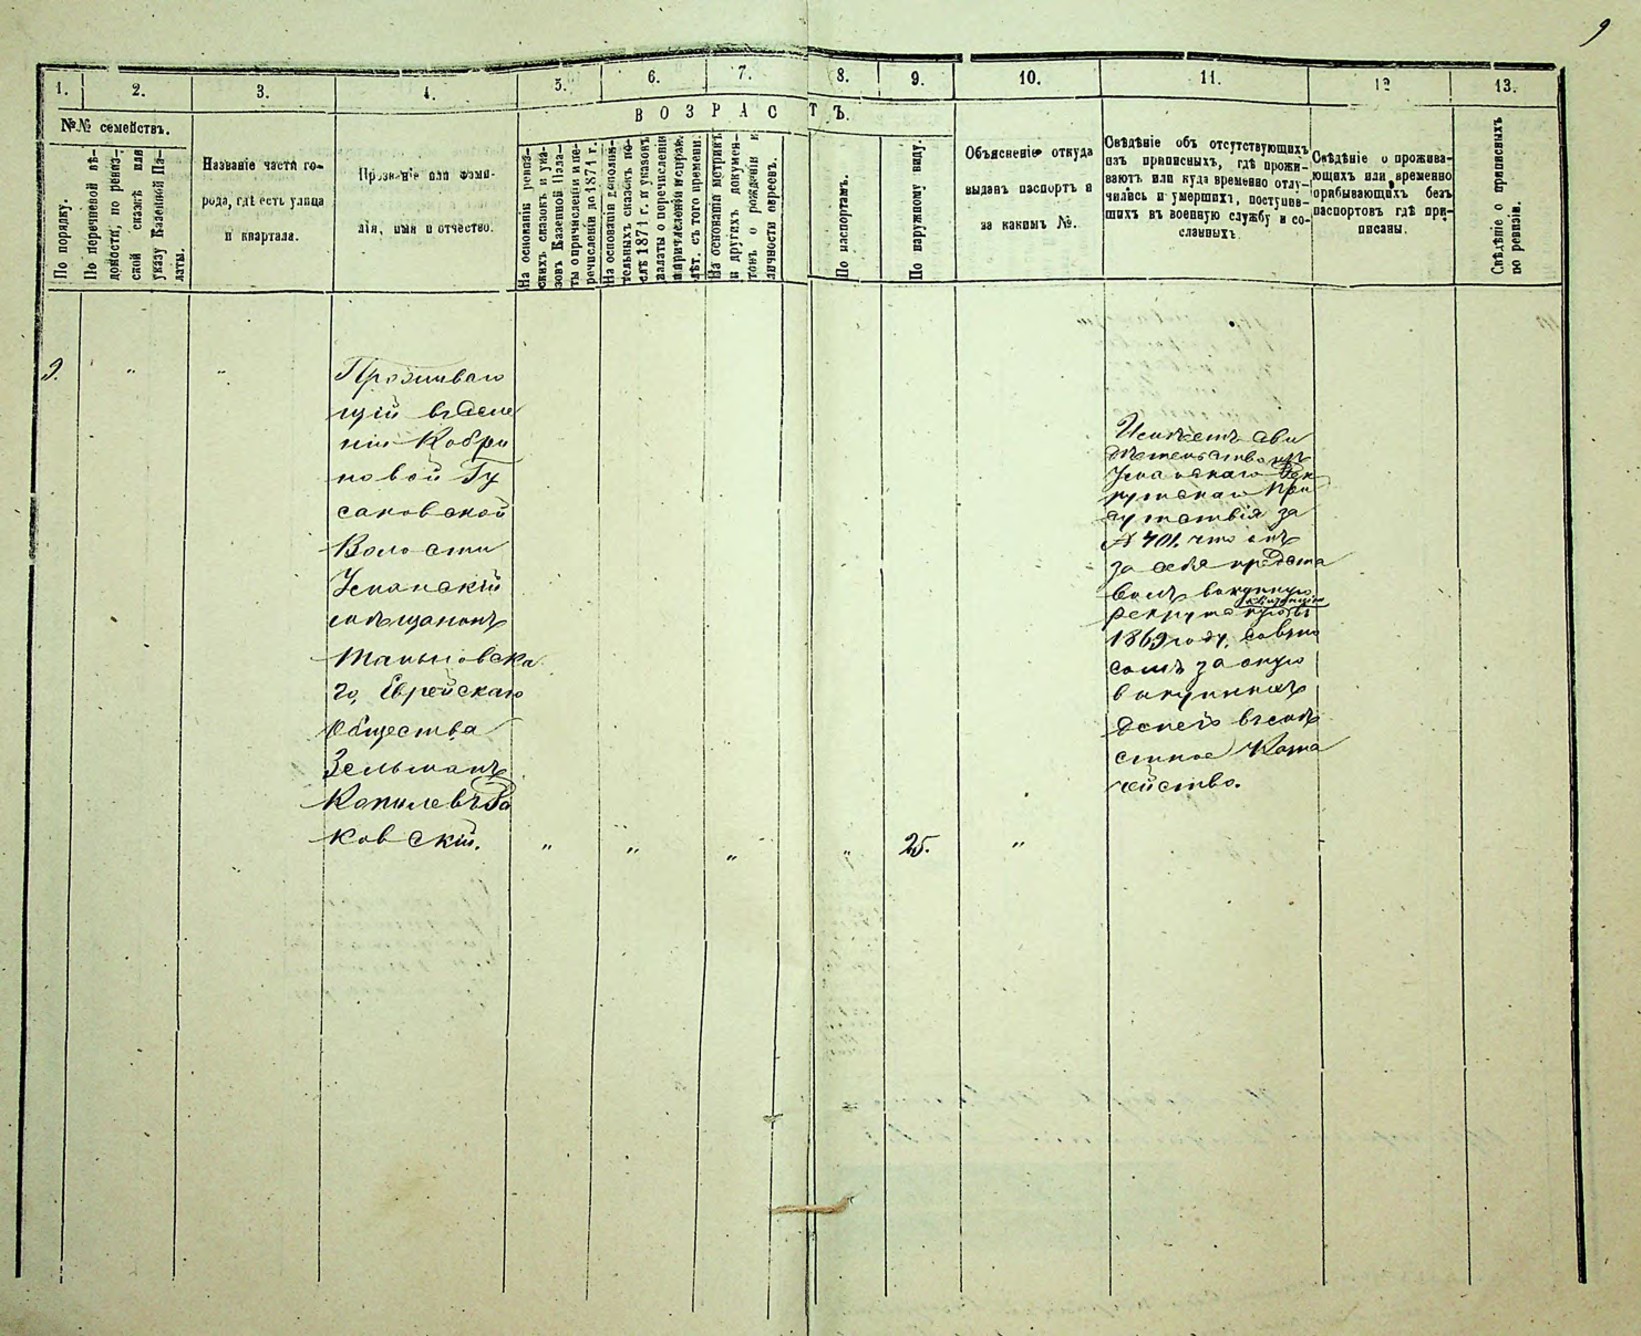 9
1. 2. 3. 4. 5. 6. 7. 8. 9. 10. 11. 12 13.
№№ семействъ.
ВОЗРАСТЪ.
По порядку.
По перечневой вѣ-
домости, по ревиз-
ской сказкѣ или
указу Казенной Па-
латы.
Названіе части го-
рода, гдѣ есть улица
и квартала.
Прозваніе или фами-
лія, имя и отчество.
На основаніи ревиз-
скихъ сказокъ и ука-
зовъ Казенной Пала-
ты о причисленіи и пе-
речисленіи до 1871 г.
На основаніи дополни-
тельныхъ сказокъ по-
слѣ 1871 г. и указовъ
палаты о перечисленіи
и причисленіи и исправ.
лѣт. съ того времени.
На основаніи метрикъ
и другихъ докумен-
товъ о рожденіи и
личности евреевъ.
По паспортамъ.
По наружному виду.
Объясненіе откуда
выданъ паспортъ и
за какимъ №.
Свѣдѣніе объ отсутствующихъ
изъ приписныхъ, гдѣ прожи-
ваютъ или куда временно отлу-
чились и умершихъ, поступив-
шихъ въ военную службу и со-
сланныхъ.
Свѣдѣніе о прожива-
ющихъ или временно
прибывающихъ безъ
паспортовъ гдѣ при-
писаны.
Свѣдѣніе о приписныхъ
по ревизіи.
9. " "
Проживаю
щій въ селе
ніи Кобри
новой Гу
саковской
Волости
Уманскій
мѣщанинъ
Тальновска
го, Еврейскаго
Общества
Зельманъ
Копилевъ Ра
ковскій. " " " " 25. "
Имѣетъ сви
дѣтельство изъ
Уманскаго Рек
рутскаго При
сутствія за
№ 701. что онъ
за себя предста
вилъ выкупную
квитанцію
рекрутскую
1869 году, съ взно
сомъ за оную
выкупныхъ
денегъ въ мѣ
стное Казна
чейство.